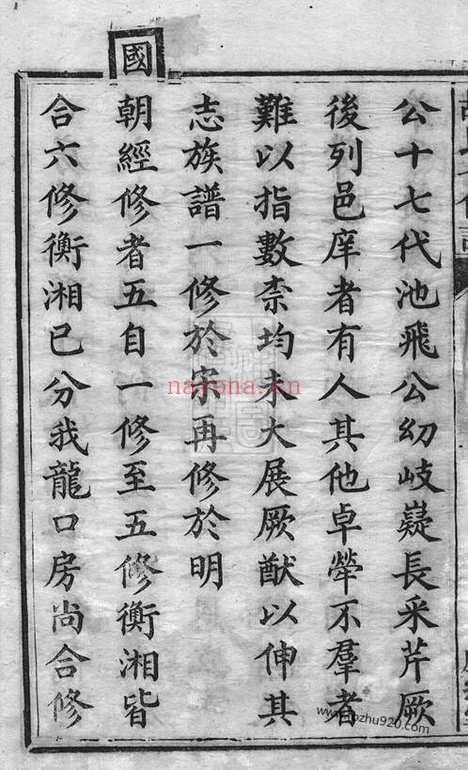 公十七代池飛公幼岐嶷長采芹厥
後列邑庠者有人其他卓犖不羣者
難以指數柰均未大展厥猷以伸其
志族譜一修於宋再修於明
國
朝經修者五自一修至五修衡湘皆
合六修衡湘已分我龍口房尚合修
nayona.cn